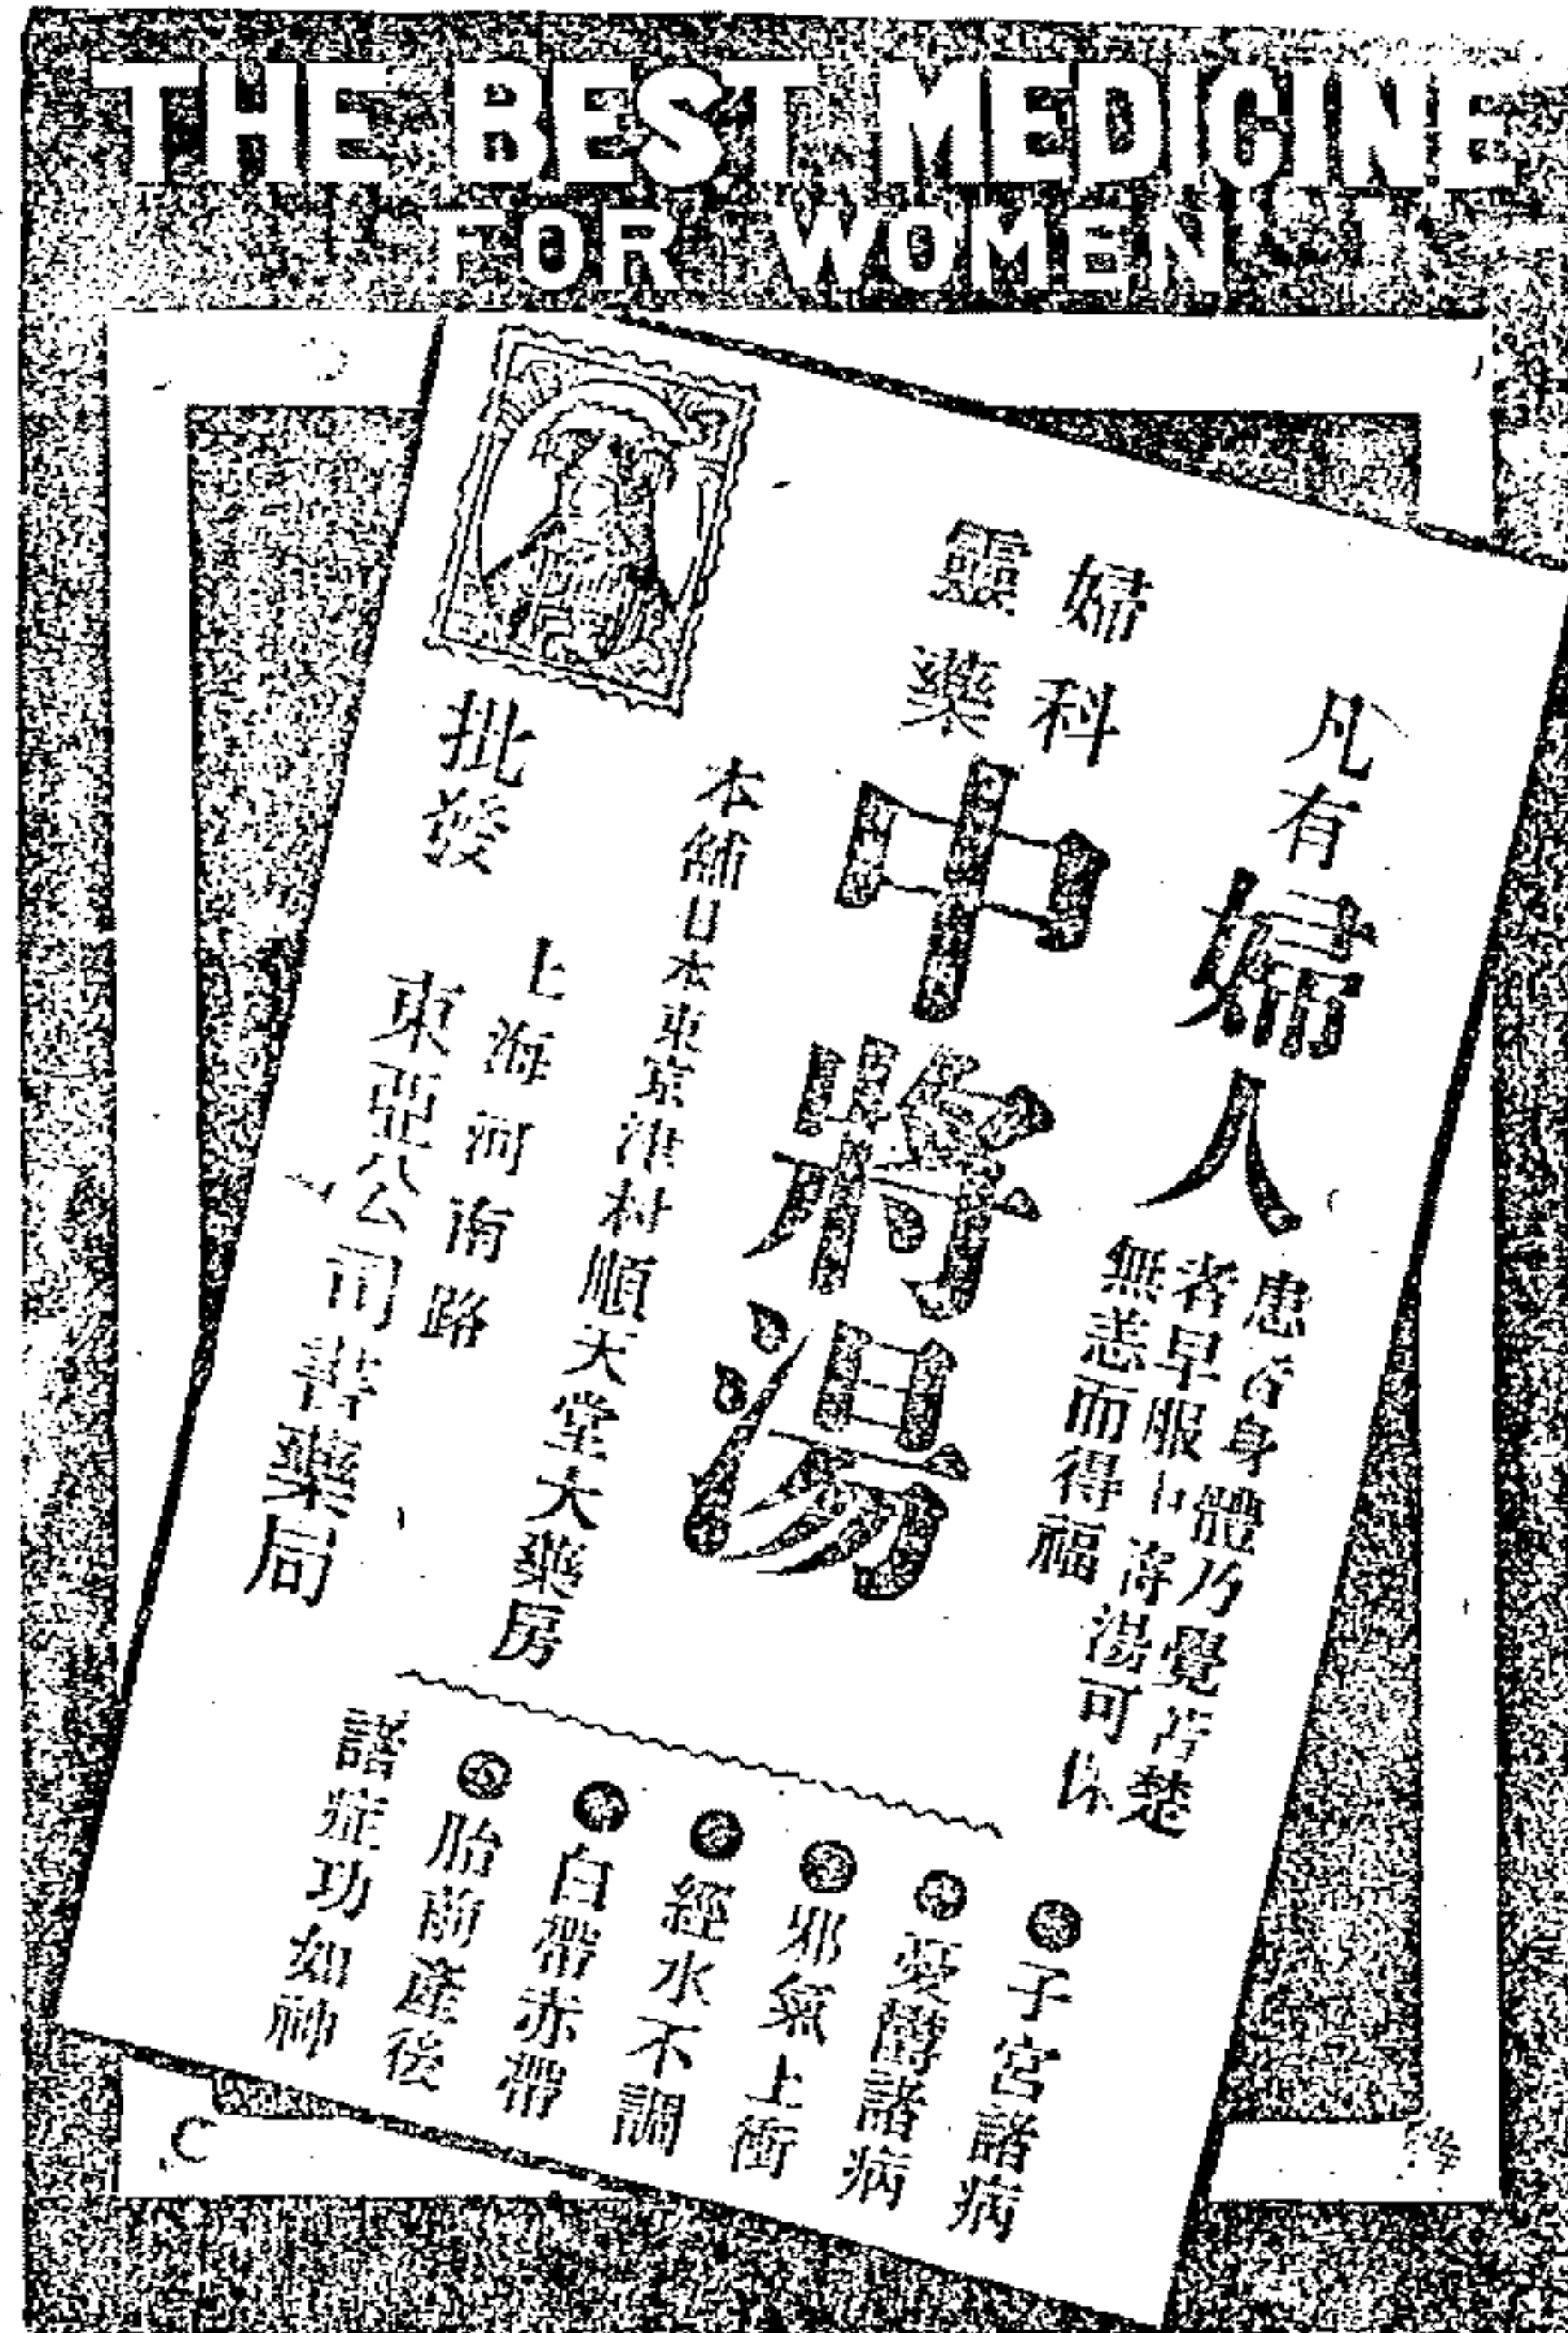 THE BEST MEDICINE
FOR WOMEN
凡有婦人
患者身體乃覺清楚
者早服中將湯可保
無恙而得福
婦科
靈藥
中將湯
本舖日本東京津村順天堂大藥房
批發
上海河南路
東亞公司書藥局
子宮諸病
憂鬱諸病
邪氣上衝
經水不調
白帶赤帶
胎前產後
諸症功如神